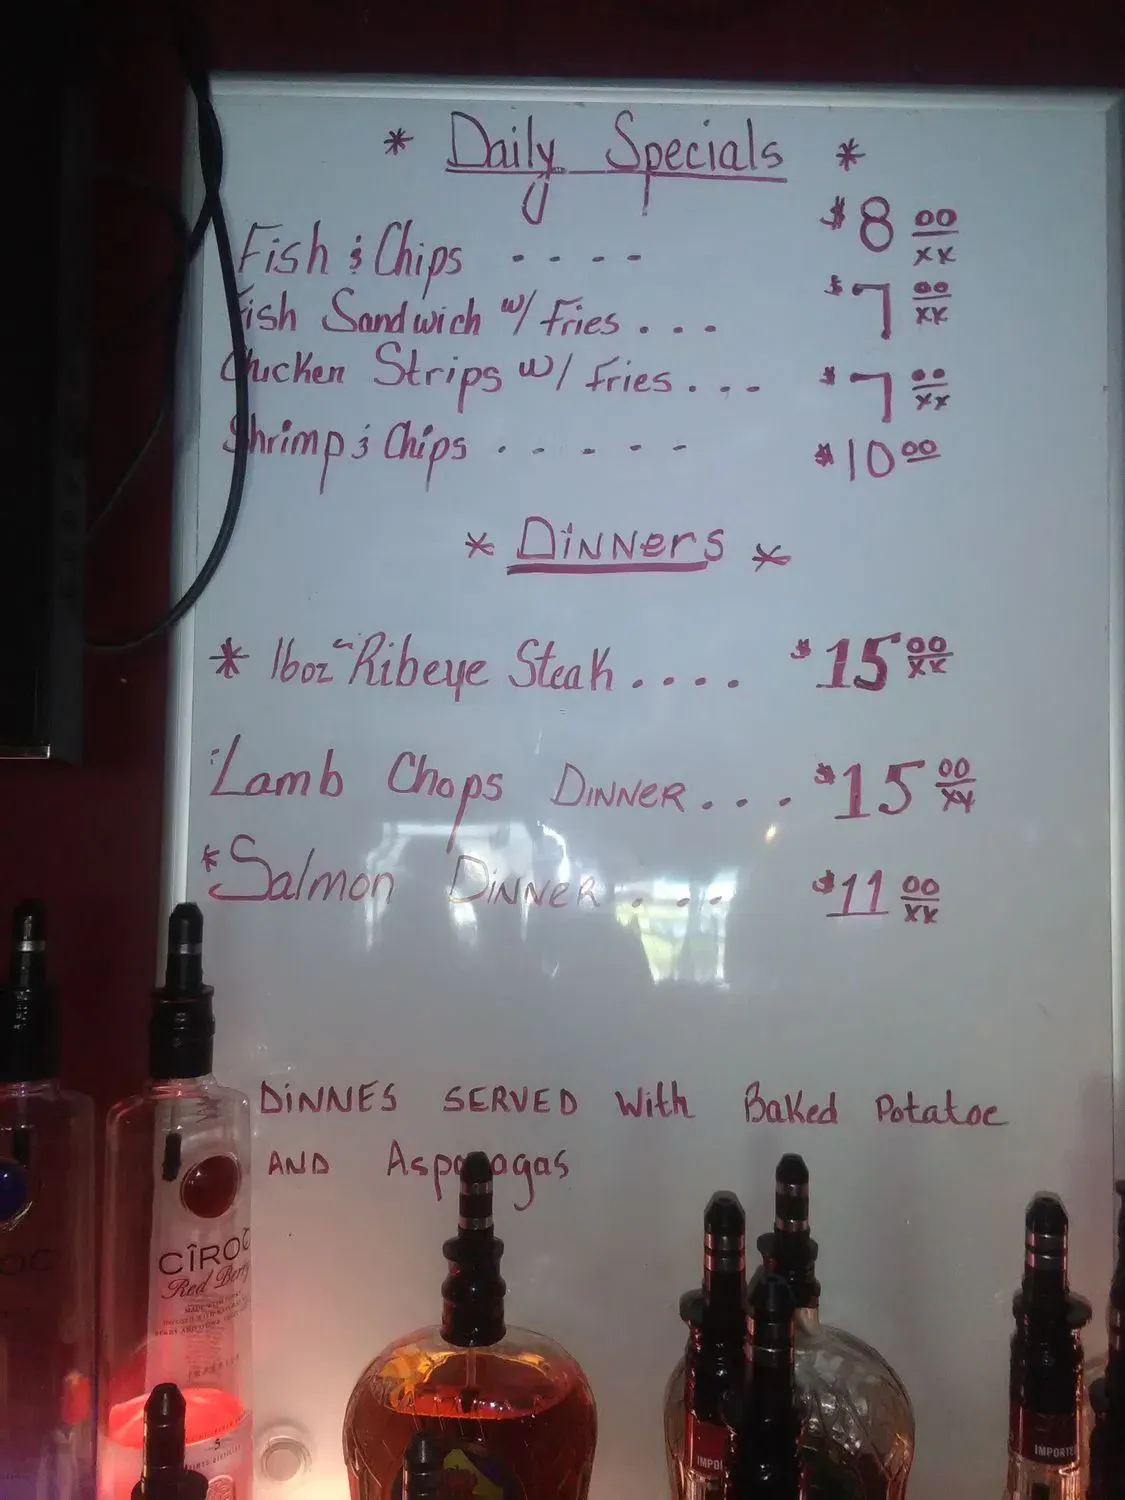 * Daily Specials *
Fish & Chips .... $8 00/xx
Fish Sandwich w/ Fries ... $7 00/xx
Chicken Strips w/ Fries ... $7 00/xx
Shrimp & Chips ..... $10 00
* Dinners *
* 16oz Ribeye Steak .... $15 00/xx
Lamb Chops Dinner ... $15 00/xx
*Salmon Dinner .... $11 00/xx
Dinnes served with Baked Potatoe
and Aspāragas
CÎROC
Red Berry
IMPORTED
IMPORTED